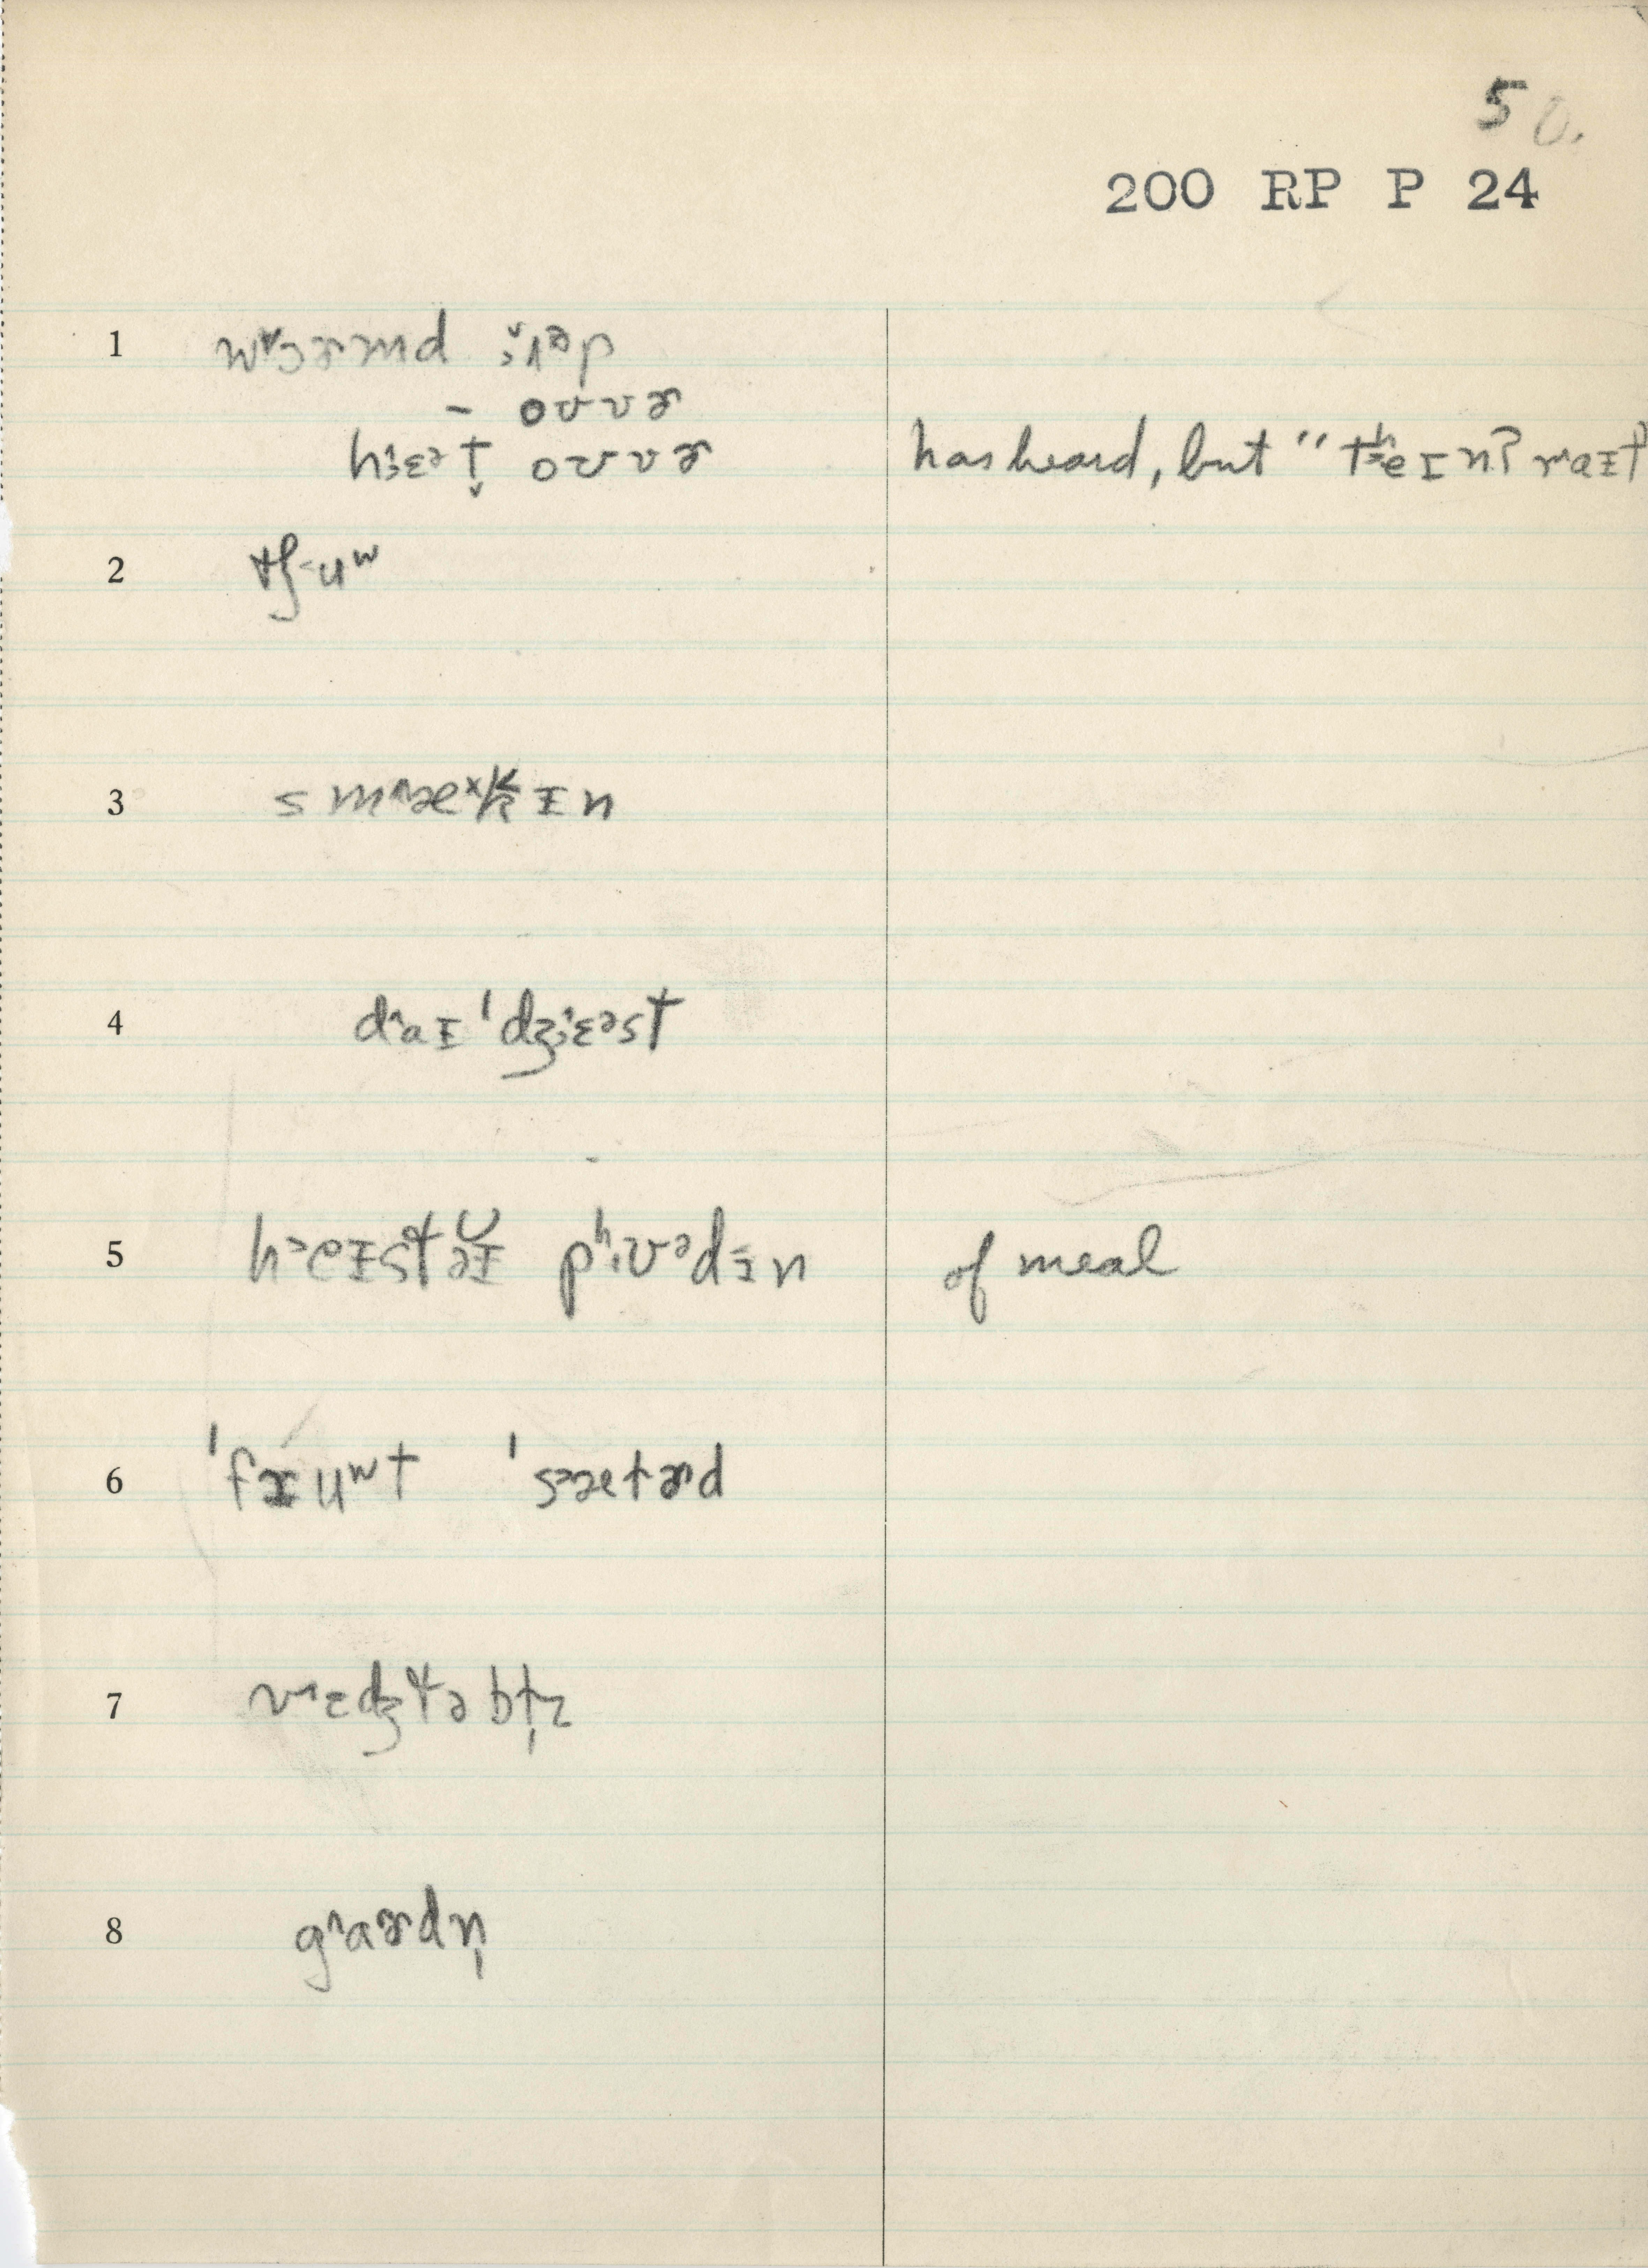 50.
200 RP P 24
1 w˅ɜɚmd ˑʌᵊp
- oʊvɚ
hˑɛᵊt̬ oʊvɚ has heard, but "tʰeɪnʔ raɪt
2 tʃ˂uʷ
3 sm˄æˣkɪn
4 d˄aɪ 'dʒˑɛᵊst
5 h˃eɪstɪ pʰˑʊᵊdɪn of meal
6 'fɪuʷt 's˃ætɚd
7 v˄ɛdʒtəbḷz
8 g˄aɚdn̩